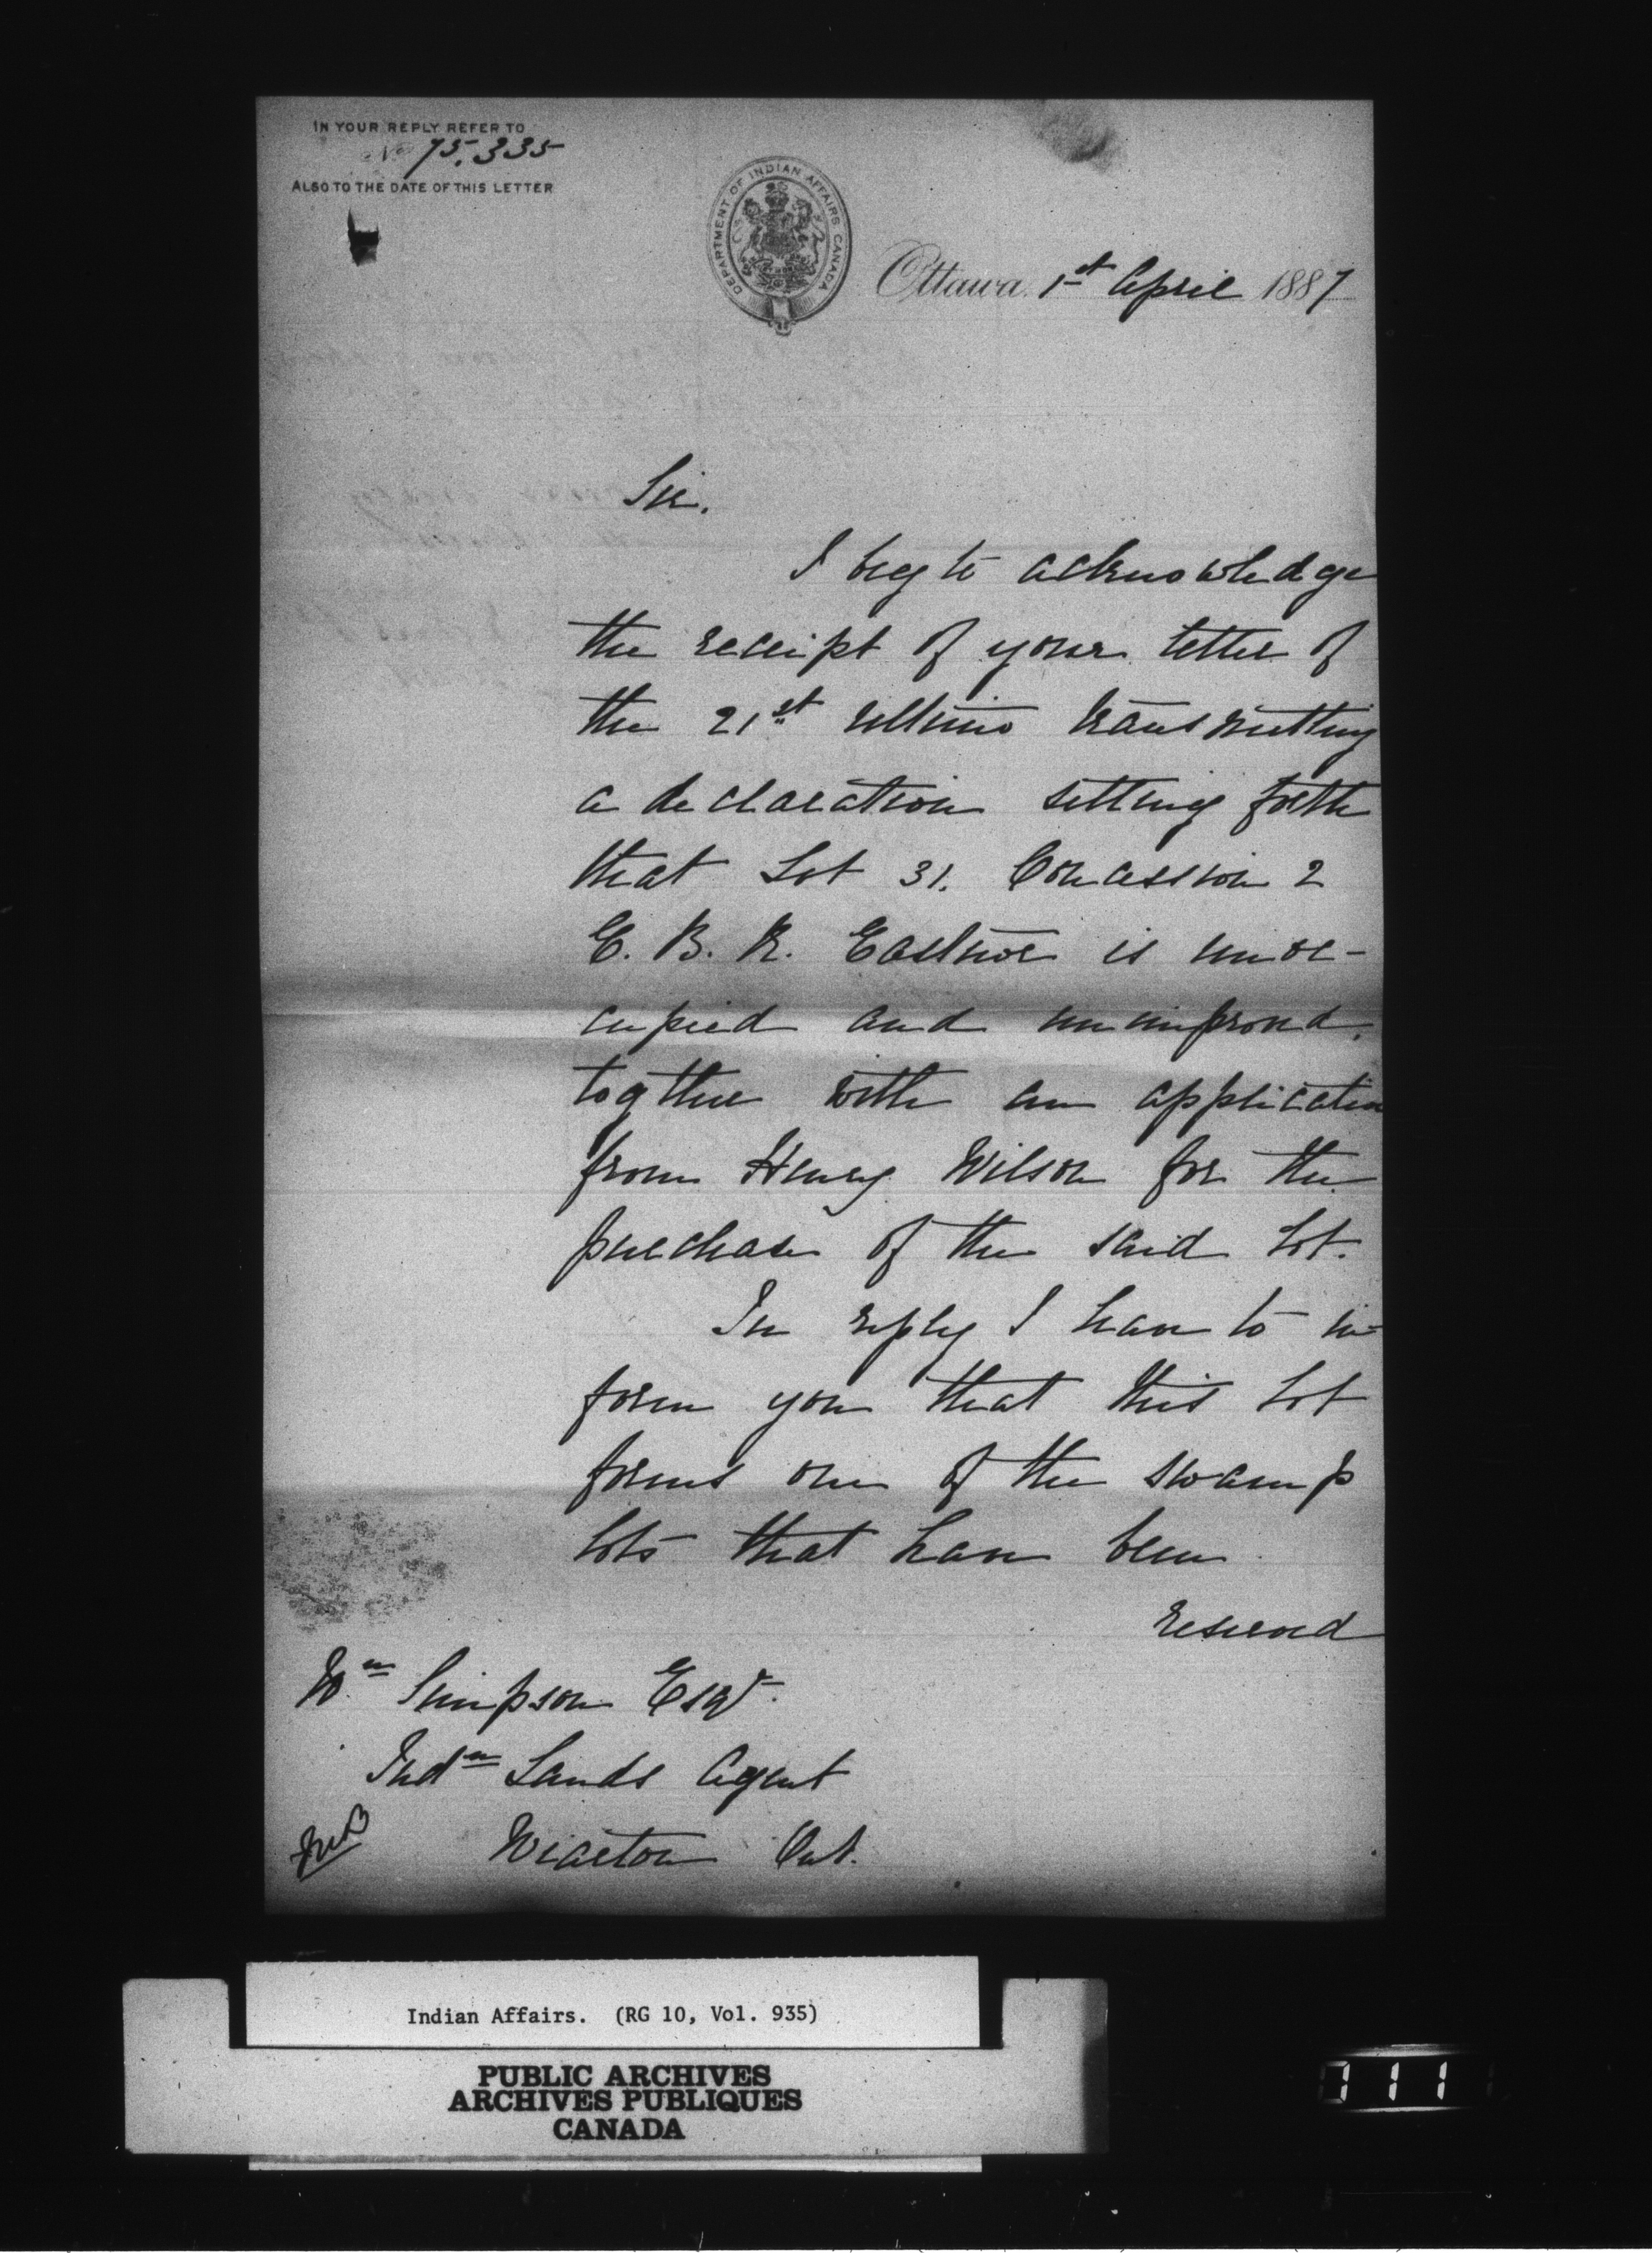 IN YOUR REPLY REFER TO
No 75.335
ALSO TO THE DATE OF THIS LETTER
DEPARTMENT OF INDIAN AFFAIRS CANADA
Ottawa. 1st April 1887
Sir.
I beg to acknowledge
the receipt of your letter of
the 21st ultimo transmitting
a declaration setting forth
that Lot 31. Concession 2
E. B. R. Eastnor is unoc-
cupied and unimproved,
together with an application
from Henry Wilson for the
purchase of the said Lot.
In reply I have to in-
form you that this Lot
forms one of the swamp
lots that have been
reserved
Wm Simpson Esqr.
Indn Lands Agent
Wiarton Ont.
Indian Affairs. (RG 10, Vol. 935)
PUBLIC ARCHIVES
ARCHIVES PUBLIQUES
CANADA
111